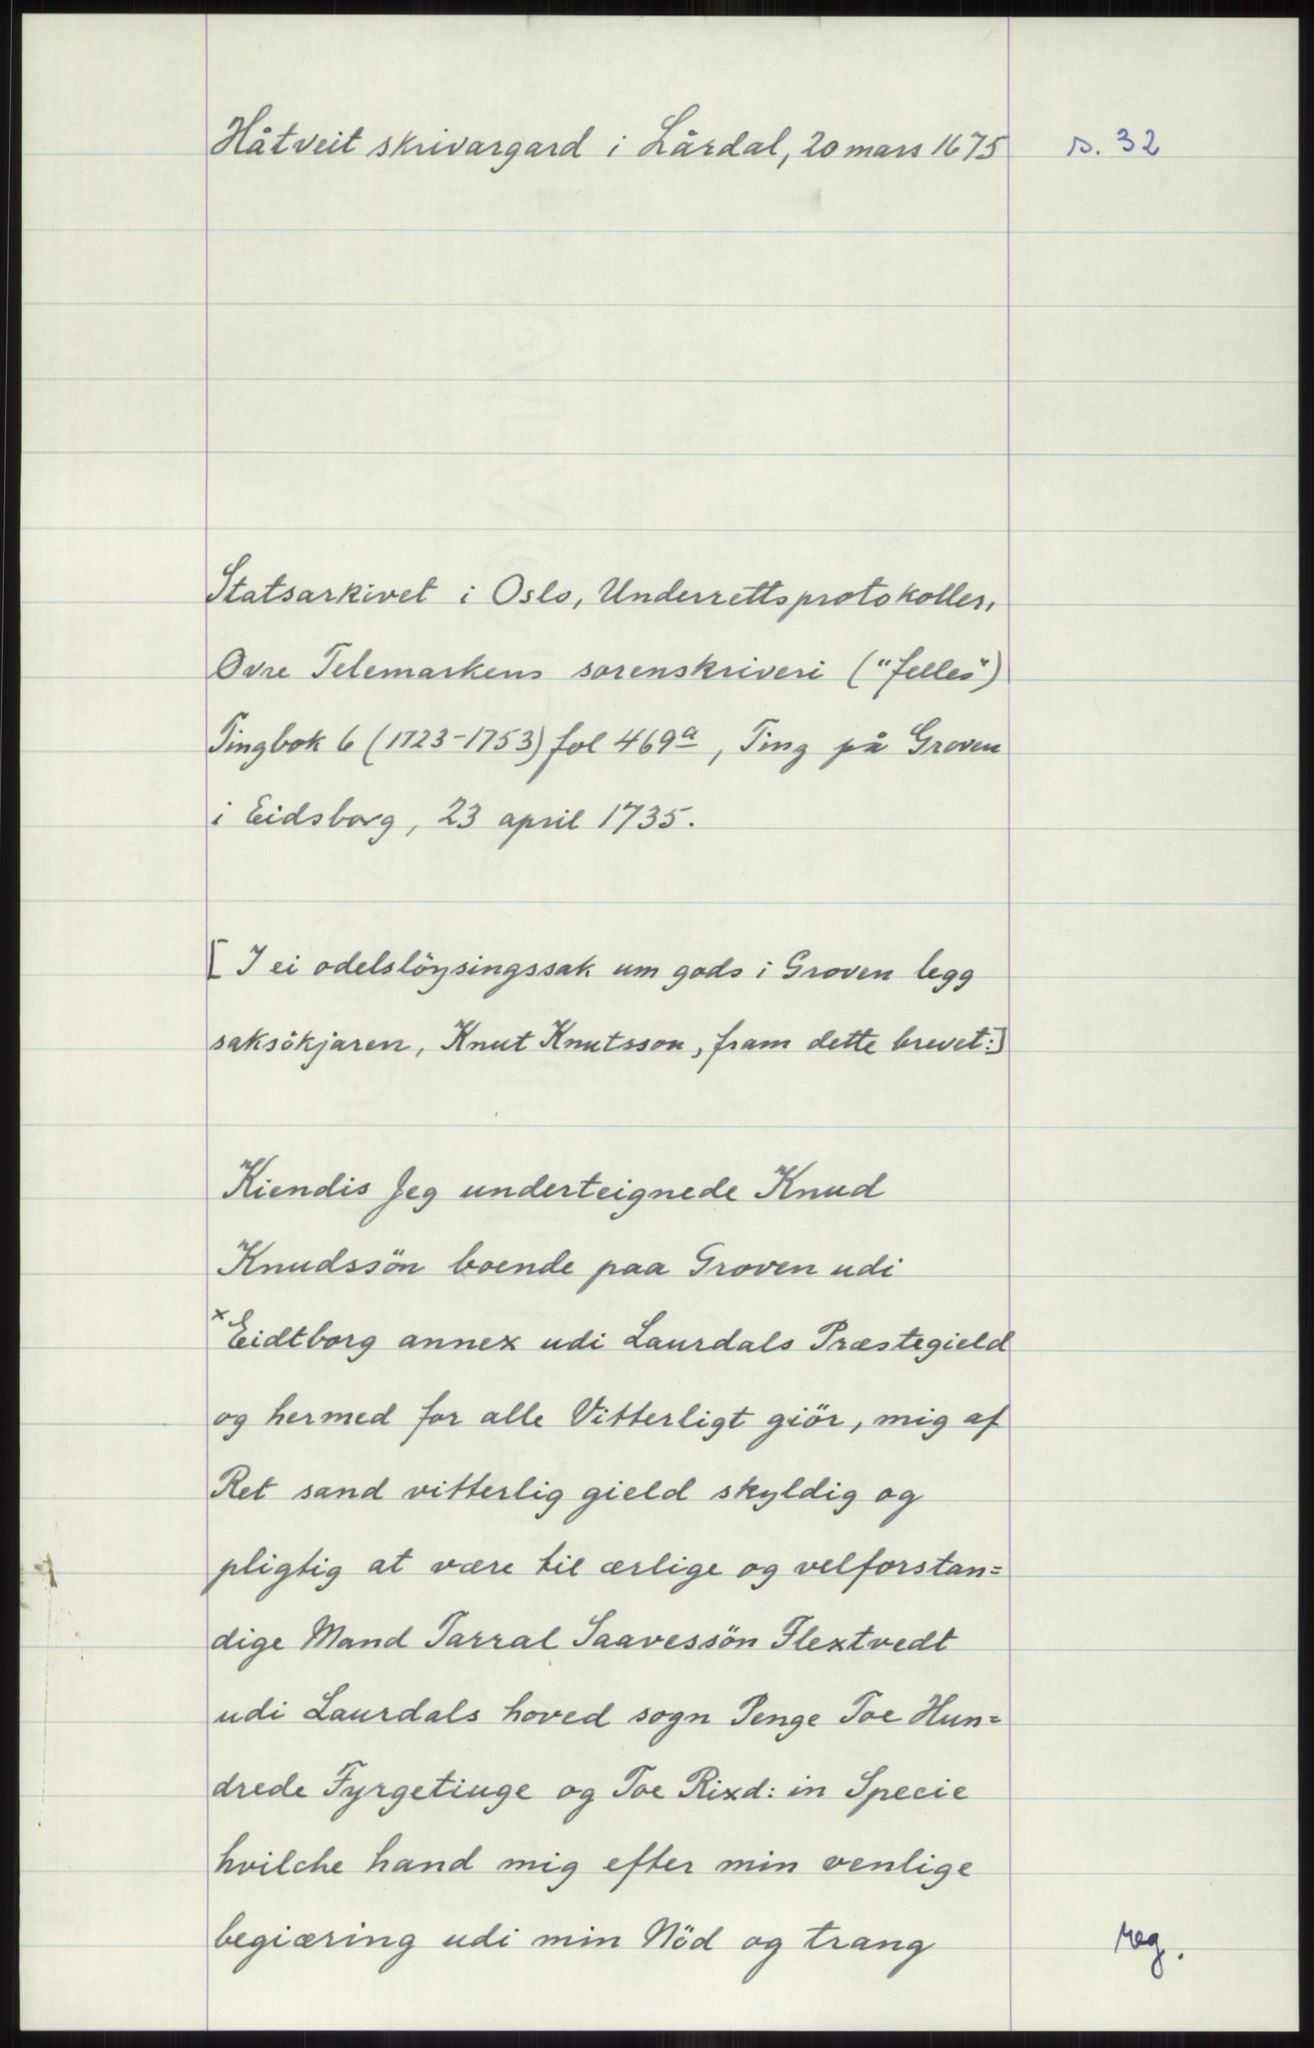 Håtveit skrivargard i Lårdal, 20 mars 1675 s. 32
Statsarkivet i Oslo, Underrettsprotokoller,
Øvre Telemarkens sorenskriveri ("felles")
Tingbok 6 (1723-1753) fol 469a, Ting på Groven
i Eidsborg, 23 april 1735.
[I ei odelslöysingssak um gods i Groven legg
saksökjaren, Knut Knutsson, fram dette brevet:]
Kiendis Jeg underteignede Knud
Knudssön boende paa Groven udi
x Eidtborg annex udi Laurdals Præstegield
og hermed for alle Vitterligt giör, mig af
Ret sand vitterlig gield skyldig og
pligtig at være til ærlige og velforstan=
dige Mand Tarral Saavessön Flextvedt
udi Laurdals hoved sogn Penge Toe Hun=
drede Fyrgetiuge og Toe Rixd: in Specie
hvilche hand mig efter min venlige
begiæring udi min Nöd og trang
reg.